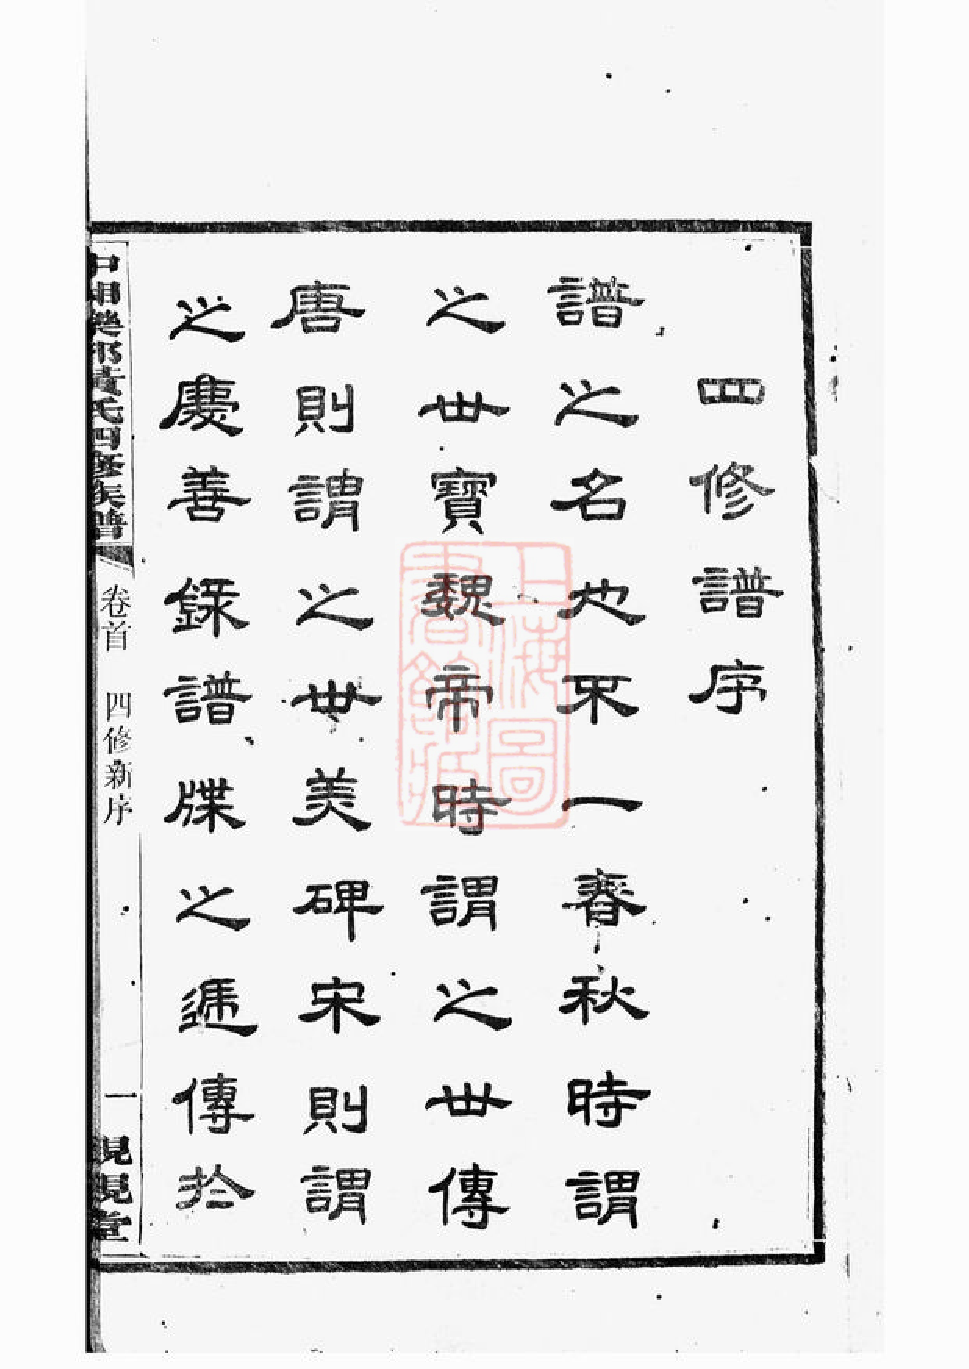 四修譜序
譜之名也不一春秋時謂
之世寶魏帝時謂之世傳
唐則謂之世美碑宋則謂
之慶善錄譜牒之遞傳於
黃氏四修族譜
卷首 四修新序
一
上海圖書館藏